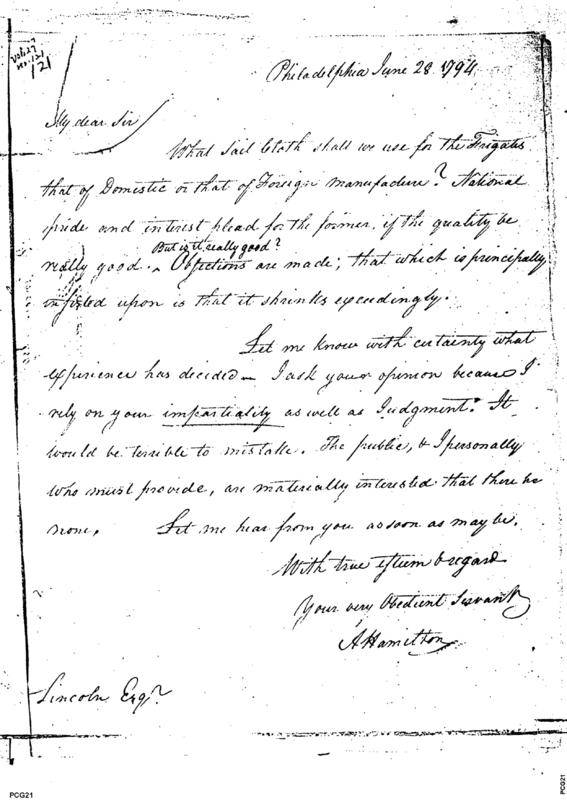 121
Philadelphia June 28 1794
My dear Sir
What Sail Cloth shall we use for the Frigates
that of Domestic or that of Foreign manufacture? National
pride and interest plead for the former, if the quality be
But is it really good?
really good. ^ Objections are made; that which is principally
insisted upon is that it shrinks exceedingly.
Let me know with certainty what
experience has decided— I ask your opinion because I
rely on your impartiality as well as Judgment. It
would be terrible to mistake. The public, & I personally
who must provide, are materially interested that there be
none. Let me hear from you as soon as may be.
With true esteem & regard
Your very Obedient Servant
A Hamilton
Lincoln Esqr.
PCG21
PCG21